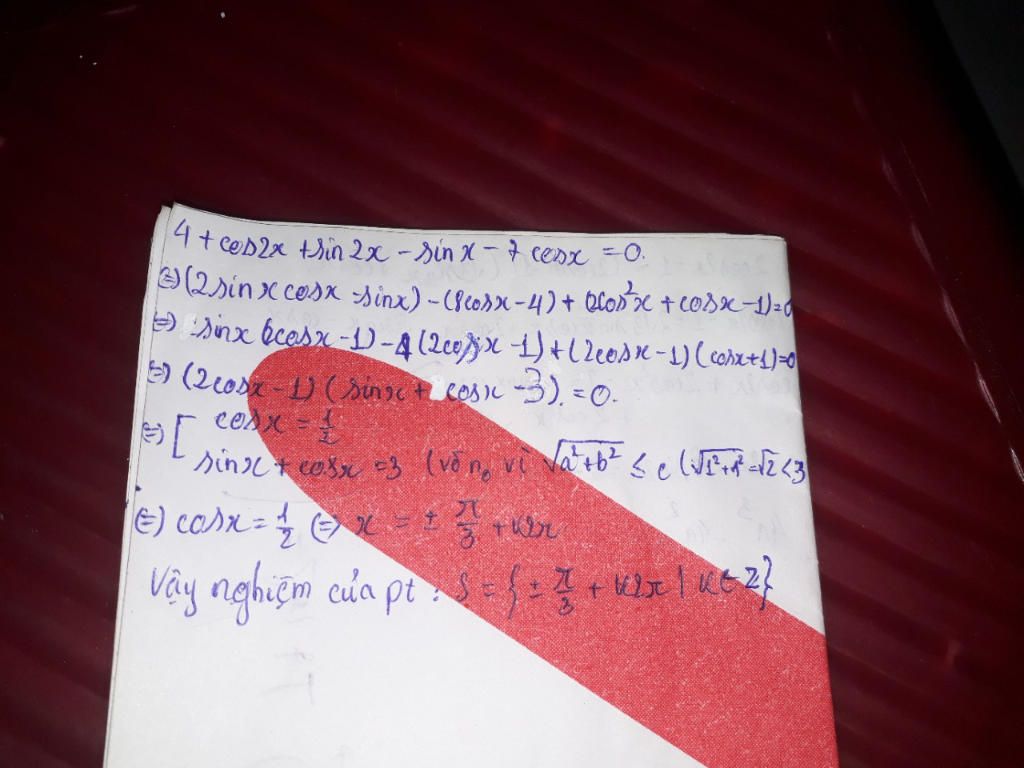 4 + cos2x + sin2x - sinx - 7cosx = 0.
⇔ (2sinxcosx - sinx) - (8cosx - 4) + (2cos²x + cosx - 1) = 0
⇔ sinx(2cosx - 1) - 4(2cosx - 1) + (2cosx - 1)(cosx + 1) = 0
⇔ (2cosx - 1)(sinx + cosx - 3) = 0.
⇔ [ cosx = 1/2
sinx + cosx = 3 (vô n₀ vì √a²+b² ≤ c (√1²+1² = √2 < 3
⇔ cosx = 1/2 ⇔ x = ± π/3 + k2π
Vậy nghiệm của pt : S = {± π/3 + k2π | k ∈ Z}